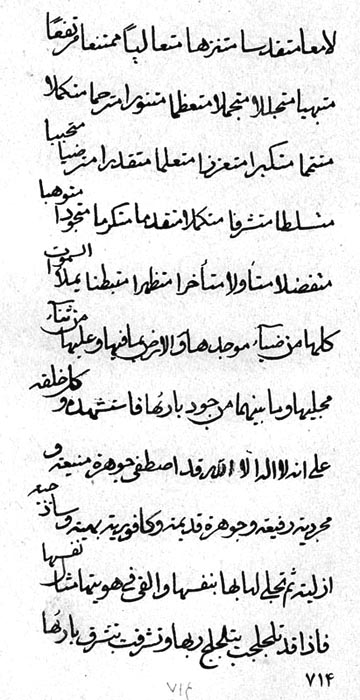 لامعا متقدسا متنزها متعاليا ممتنعا مرتفعا
متبهيا متجللا متجملا متعظما متنورا مترحما متكملا
متكبرا متعززا متعلما متقدرا مترضيا متحببا
متسلطا متشرفا متكملا متقدما متكرما متجودا متوهبا
متفضلا متأولا متأخرا متظهرا متبطنا يملأ السموت
كلها من ضياء موجدها والارض بما فيها وعليها من ثناء
مجليها وما بينهما من جود بارئها فاستشهده و كل خلقه
على انه لا اله الا الله قد اصطفى جوهرة منيعة و
مجردية رفيعة وجوهرة قديمة وكافورية بهية و ساذجية
ازلية ثم تجلى لها بها بنفسها والقى فى هويتها مثال نفسها
فاذا قد تلجلجت بتلجلج ربها وتشرقت بتشرق بارئها
٧١۴
٧١٤